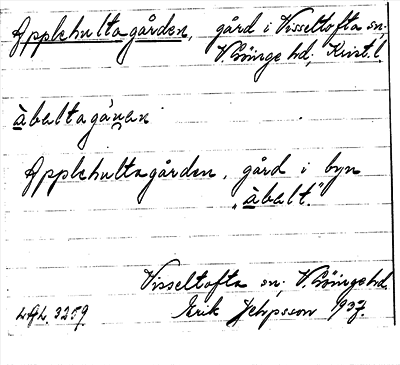 Applehultagården, gård i Visseltofta sn,
V. Göinge hd, Krist. l.
àbaltagá'ɹ̥an
Applehultagården, gård i byn
"àbalt."
Visseltofta sn, V. Göinge hd.
LAL. 3259. Erik Jeppsson 1937.